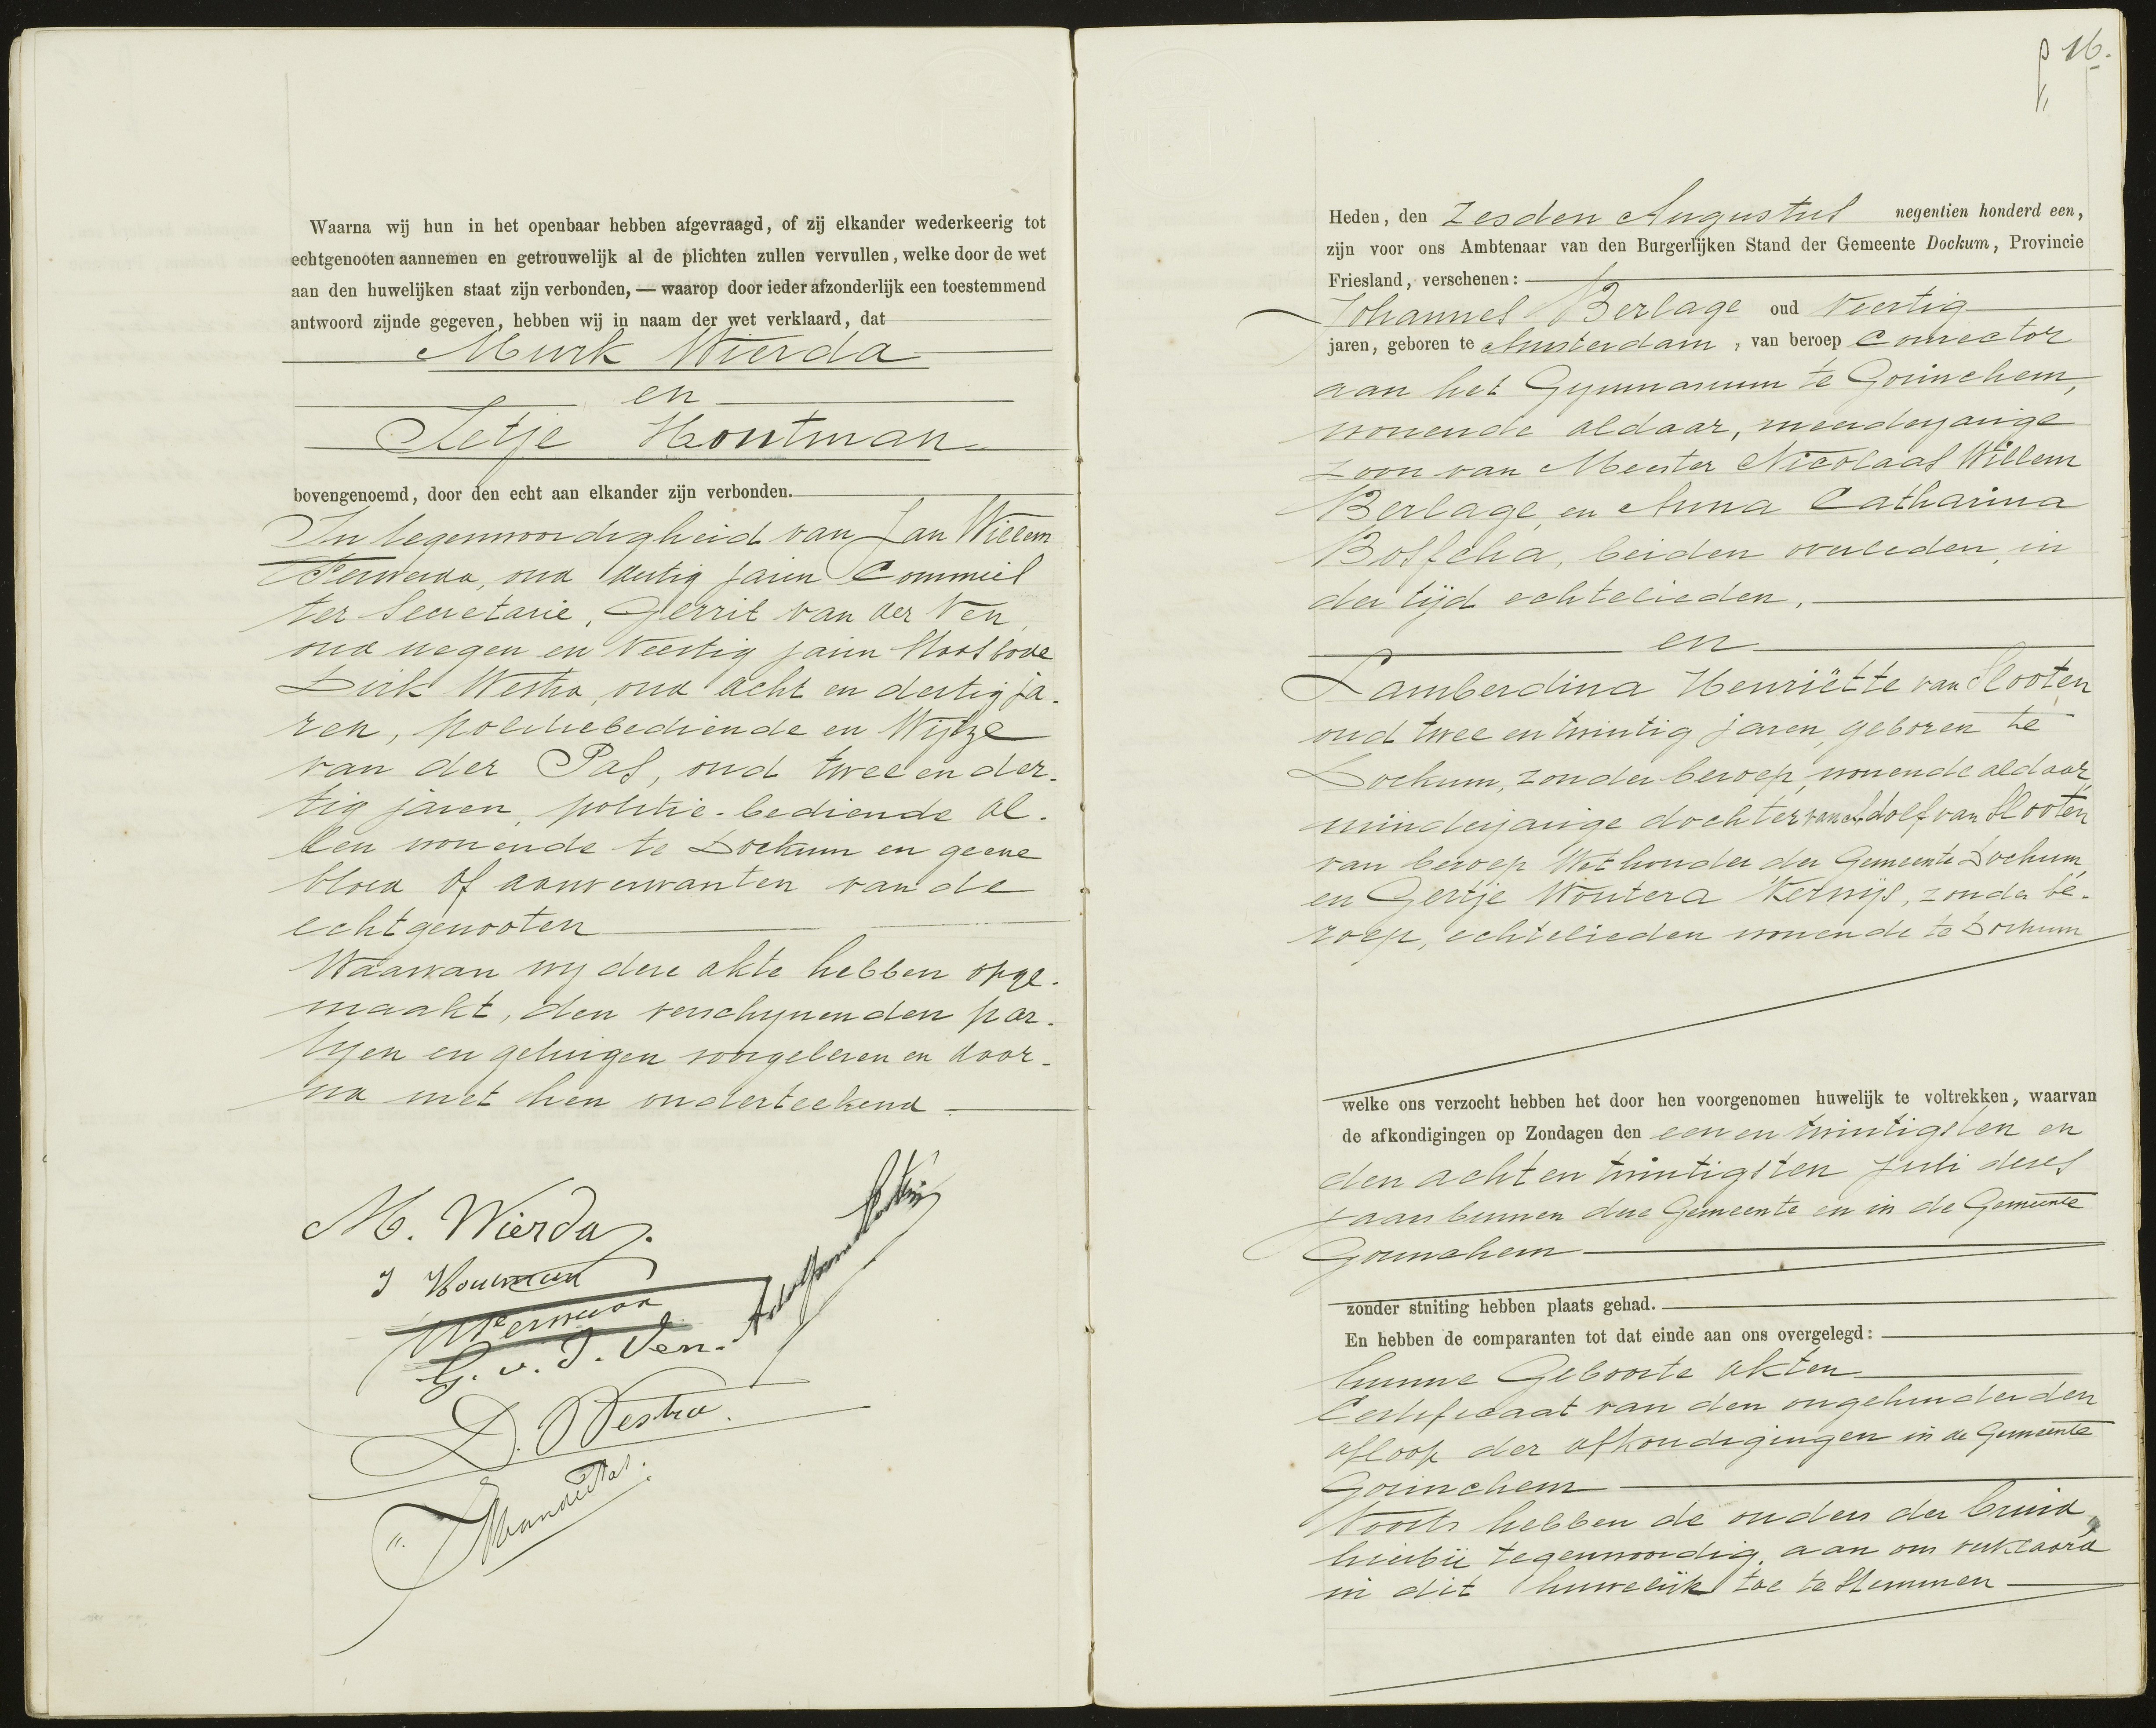 Waarna wij hun in het openbaar hebben afgevraagd, of zij elkander wederkeerig tot
echtgenooten aannemen en getrouwelijk al de plichten zullen vervullen, welke door de wet
aan den huwelijken staat zijn verbonden, — waarop door ieder afzonderlijk een toestemmend
antwoord zijnde gegeven, hebben wij in naam der wet verklaard, dat
Murk Wierda
en
Ietje Houtman
bovengenoemd, door den echt aan elkander zijn verbonden.
In tegenwoordigheid van Jan Willem
Ferwerda, oud dertig jaren Commies
ter Secretarie, Gerrit van der Ven,
oud negen en Veertig jaren Stads bode
Dirk Westra, oud acht en dertig ja-
ren, politiebediende en Wijtze
van der Pas, oud twee en der-
tig jaren, politie-bediende al-
len wonende te Dockum en geene
bloed of aanverwanten van de
echtgenooten
Waarvan wy deze akte hebben opge-
maakt, den verschynenden par-
tyen en getuigen voorgelezen en daar-
na met hen onderteekend
M. Wierda.
J Houtman
JWFerwerda
G. v. d. Ven.
D. Westra.
W van der Pas.
16.
Heden, den Zesden Augustus negentien honderd een,
zijn voor ons Ambtenaar van den Burgerlijken Stand der Gemeente Dockum, Provincie
Friesland, verschenen:
Johannes Berlage oud Veertig
jaren, geboren te Amsterdam, van beroep Conrector
aan het Gymnasium te Gorinchem,
wonende aldaar, meerderjarige
zoon van Meester Nicolaas Willem
Berlage, en Anna Catharina
Bosscha, beiden overleden, in
der tijd echtelieden.
en
Lamberdina Henriëtte van Slooten,
oud twee en twintig jaren, geboren te
Dockum, zonder beroep, wonende aldaar,
minderjarige dochter van Adolf van Slooten
van beroep Wethouder der Gemeente Dockum,
en Gertje Woutera Kerwijs, zonder be-
roep, echtelieden wonende te Dockum
welke ons verzocht hebben het door hen voorgenomen huwelijk te voltrekken, waarvan
de afkondigingen op Zondagen den een en twintigsten en
den acht en twintigsten Juli dezes
jaars binnen deze Gemeente en in de Gemeente
Gorinchem
zonder stuiting hebben plaats gehad.
En hebben de comparanten tot dat einde aan ons overgelegd:
hunne Geboorte akten
Certificaat van den ongehinderden
afloop der afkondigingen in de Gemeente
Gorinchem
Voorts hebben de ouders der bruid,
hierbij tegenwoordig, aan ons verklaard
in dit huwelijk toe te Stemmen